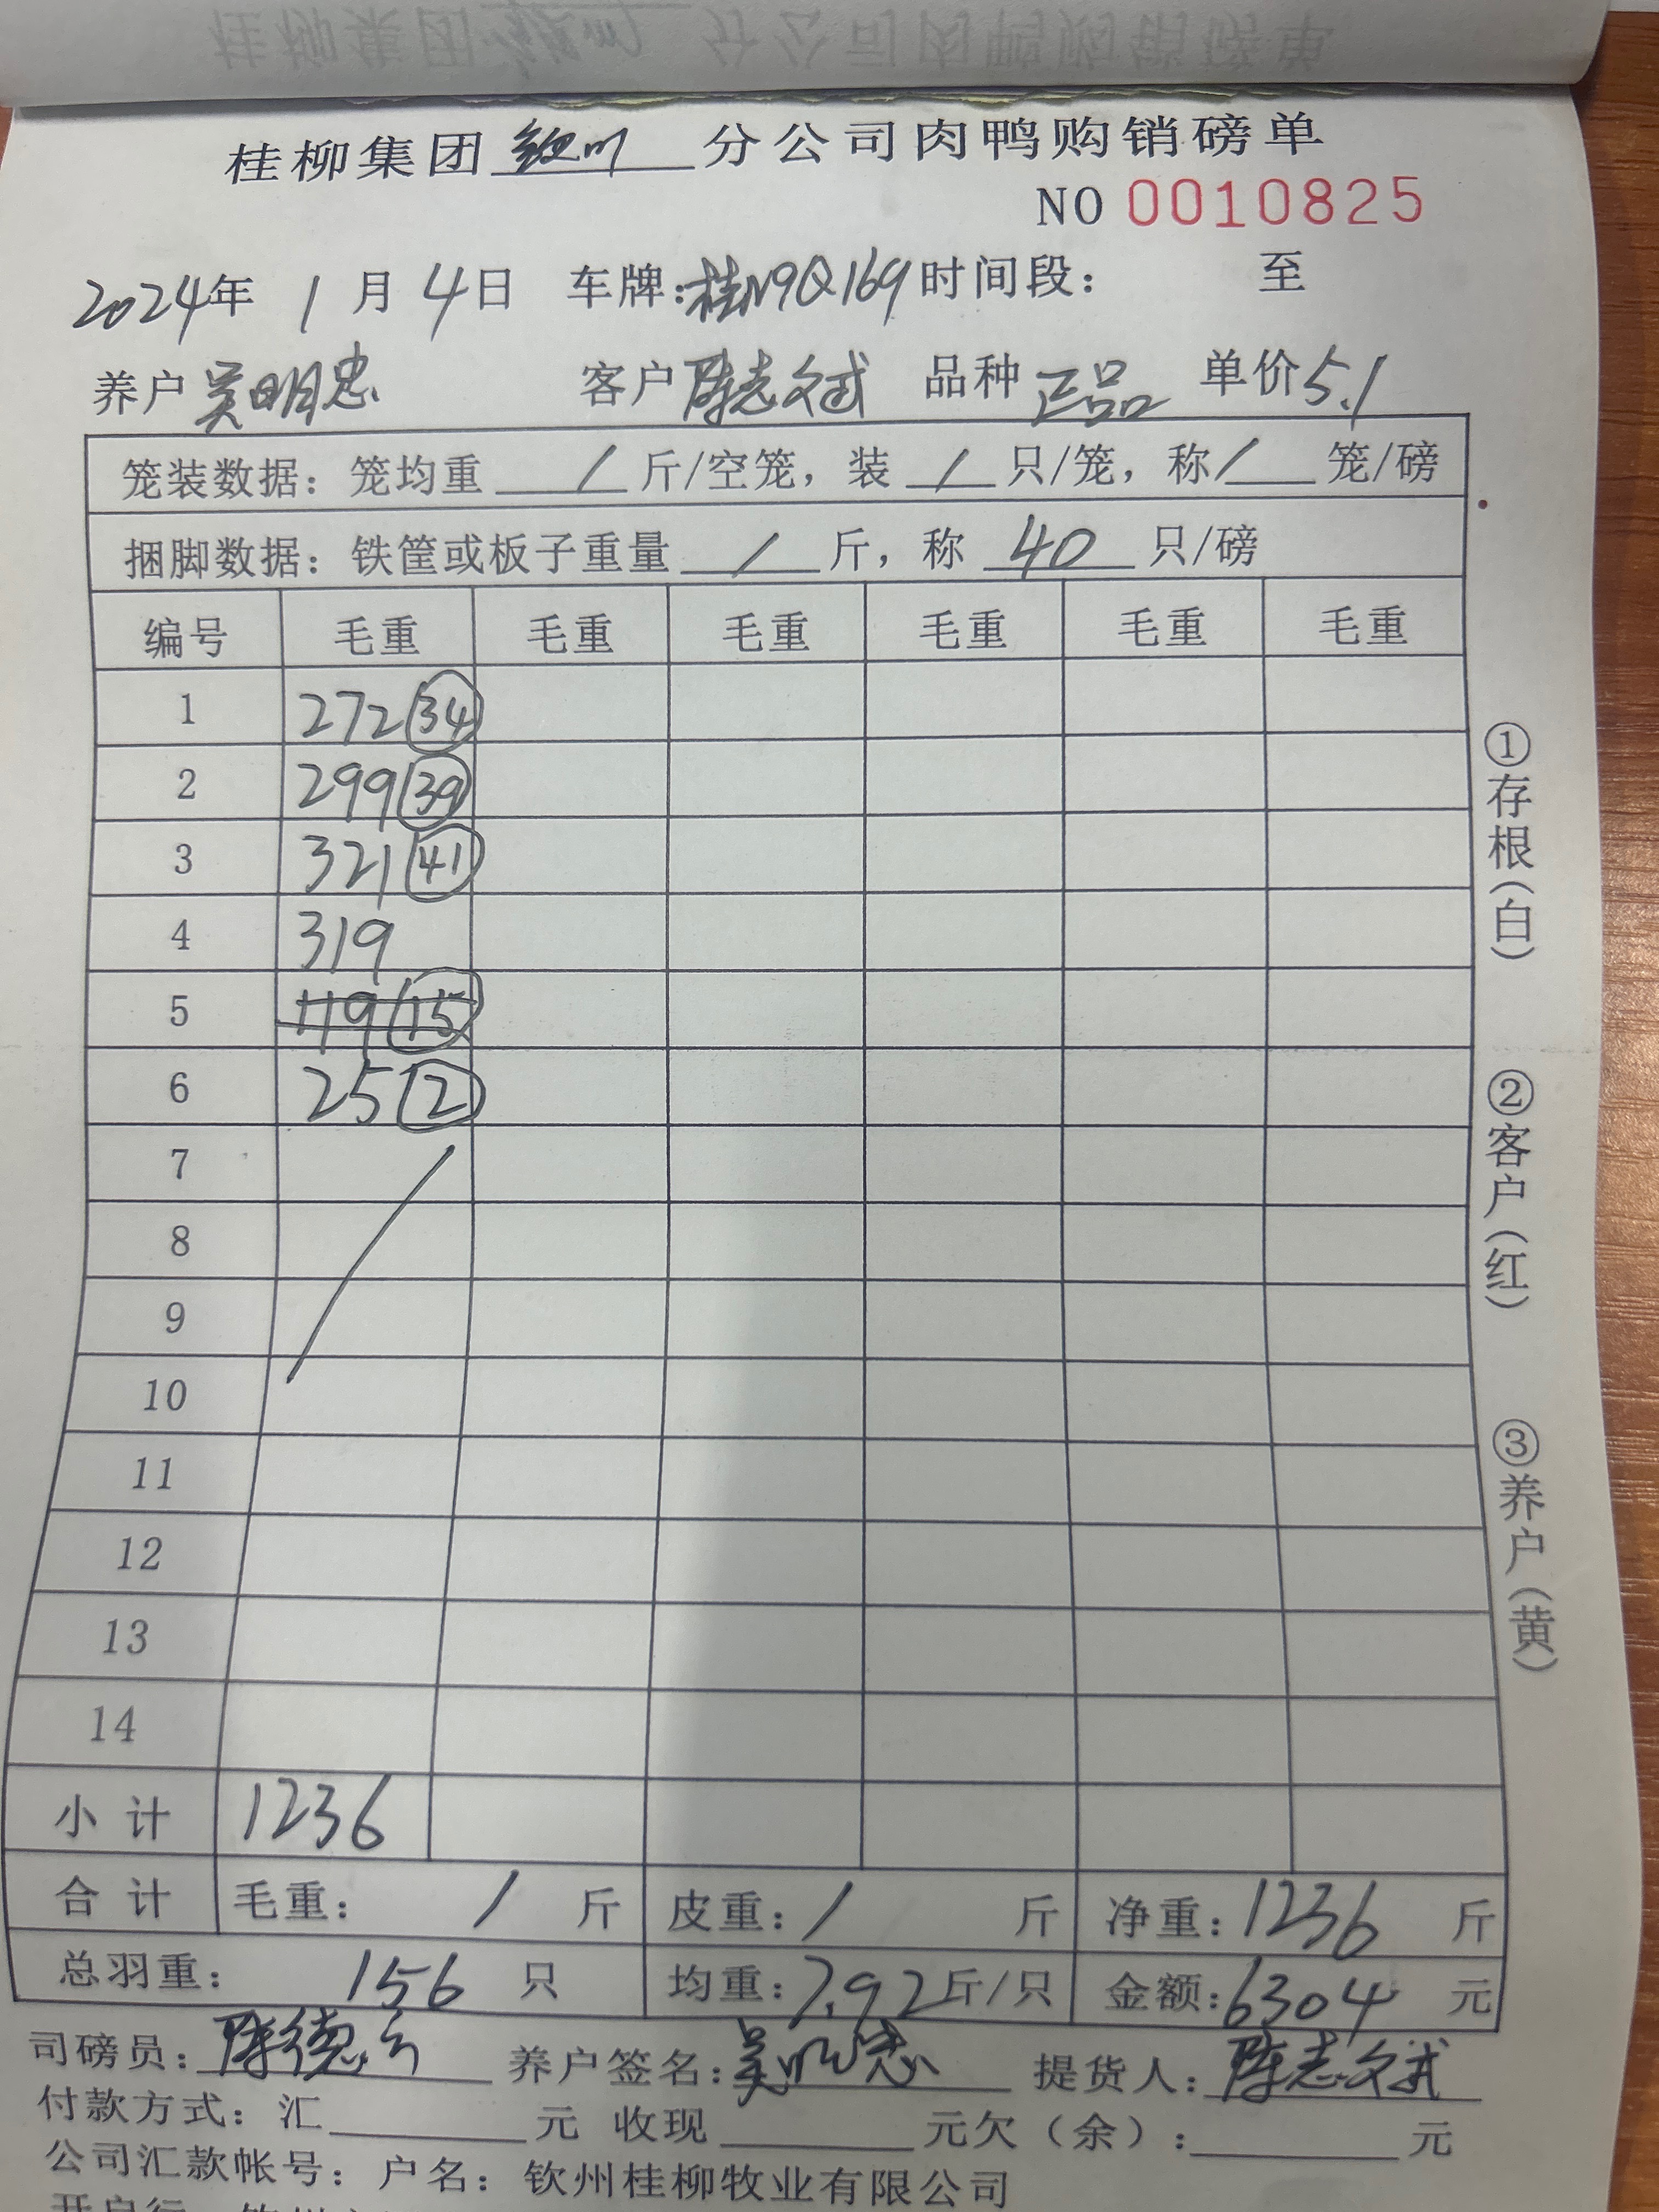 桂柳集团钦州分公司肉鸭购销磅单
NO 0010825
2024年 1月 4日 车牌:桂N9Q169 时间段: 至
养户 吴明忠 客户 陈志斌 品种 正品 单价 5.1
笼装数据: 笼均重 / 斤/空笼, 装 / 只/笼, 称 / 笼/磅
捆脚数据: 铁筐或板子重量 / 斤, 称 40 只/磅
编号 毛重 毛重 毛重 毛重 毛重 毛重
1 272 34
2 299 39
3 321 41
4 319
5 119 15
6 25 2
7
8
9
10
11
12
13
14
小计 1236
合计 毛重: / 斤 皮重: / 斤 净重: 1236 斤
总羽重: 156 只 均重: 7.92 斤/只 金额: 6304 元
司磅员: 陈德 养户签名: 吴明忠 提货人: 陈志斌
付款方式: 汇 元 收现 元欠(余): 元
公司汇款帐号: 户名: 钦州桂柳牧业有限公司
①存根(白)
②客户(红)
③养户(黄)